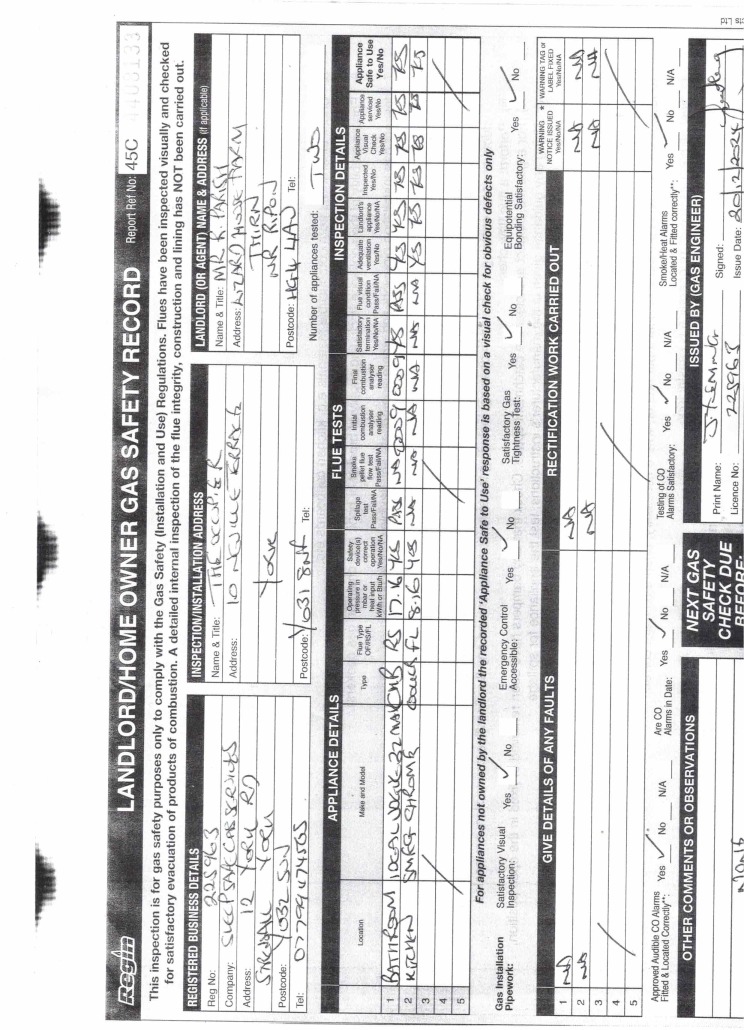 Regin
LANDLORD/HOME OWNER GAS SAFETY RECORD
Report Ref No: 45C
This inspection is for gas safety purposes only to comply with the Gas Safety (Installation and Use) Regulations. Flues have been inspected visually and checked
for satisfactory evacuation of products of combustion. A detailed internal inspection of the flue integrity, construction and lining has NOT been carried out.
REGISTERED BUSINESS DETAILS
Reg No: 225963
Company:
Address: 12 YORK RD
YORK
Postcode: YO32
Tel:
INSPECTION/INSTALLATION ADDRESS
Name & Title: THE OCCUPIER
Address: 10
YORK
Postcode: YO31
Tel:
LANDLORD (OR AGENT) NAME & ADDRESS (if applicable)
Name & Title: MR R.
Address: HOUSE FARM
THIRN
NR RIPON
Postcode: HG4 4AU Tel:
Number of appliances tested: TWO
APPLIANCE DETAILS
FLUE TESTS
INSPECTION DETAILS
Location
Make and Model
Type
Flue Type OF/RS/FL
Operating pressure in mbar or heat input kWh or Btu/h
Safety device(s) correct operation Yes/No/NA
Spillage test Pass/Fail/NA
Smoke pellet flue flow test Pass/Fail/NA
Initial combustion analyser reading
Final combustion analyser reading
Satisfactory termination Yes/No/NA
Flue visual condition Pass/Fail/NA
Adequate ventilation Yes/No
Landlord's appliance Yes/No/NA
Inspected Yes/No
Appliance Visual Check Yes/No
Appliance serviced Yes/No
Appliance Safe to Use Yes/No
1 BATHROOM IDEAL 32 RS 17.16 YES NA 0009 0009 YES PASS YES YES YES YES YES YES
2 KITCHEN SMEG CHROME FL 8.16 YES NA NA NA NA NA NA YES YES YES YES YES YES
3
4
5
For appliances not owned by the landlord the recorded 'Appliance Safe to Use' response is based on a visual check for obvious defects only
Gas Installation Pipework:
Satisfactory Visual Inspection: Yes ✓ No
Emergency Control Accessible: Yes ✓ No
Satisfactory Gas Tightness Test: Yes ✓ No
Equipotential Bonding Satisfactory: Yes ✓ No
GIVE DETAILS OF ANY FAULTS
RECTIFICATION WORK CARRIED OUT
WARNING * NOTICE ISSUED Yes/No/NA
WARNING TAG or LABEL FIXED Yes/No/NA
1 NA NA NA NA
2 NA NA NA NA
3
4
5
Approved Audible CO Alarms Fitted & Located Correctly**: Yes ✓ No N/A
Are CO Alarms in Date: Yes ✓ No N/A
Testing of CO Alarms Satisfactory: Yes ✓ No N/A
Smoke/Heat Alarms Located & Fitted correctly**: Yes ✓ No N/A
OTHER COMMENTS OR OBSERVATIONS
NEXT GAS
SAFETY
CHECK DUE
BEFORE:
ISSUED BY (GAS ENGINEER)
Print Name:
Signed:
Licence No: 225963
Issue Date: 20/12/2024